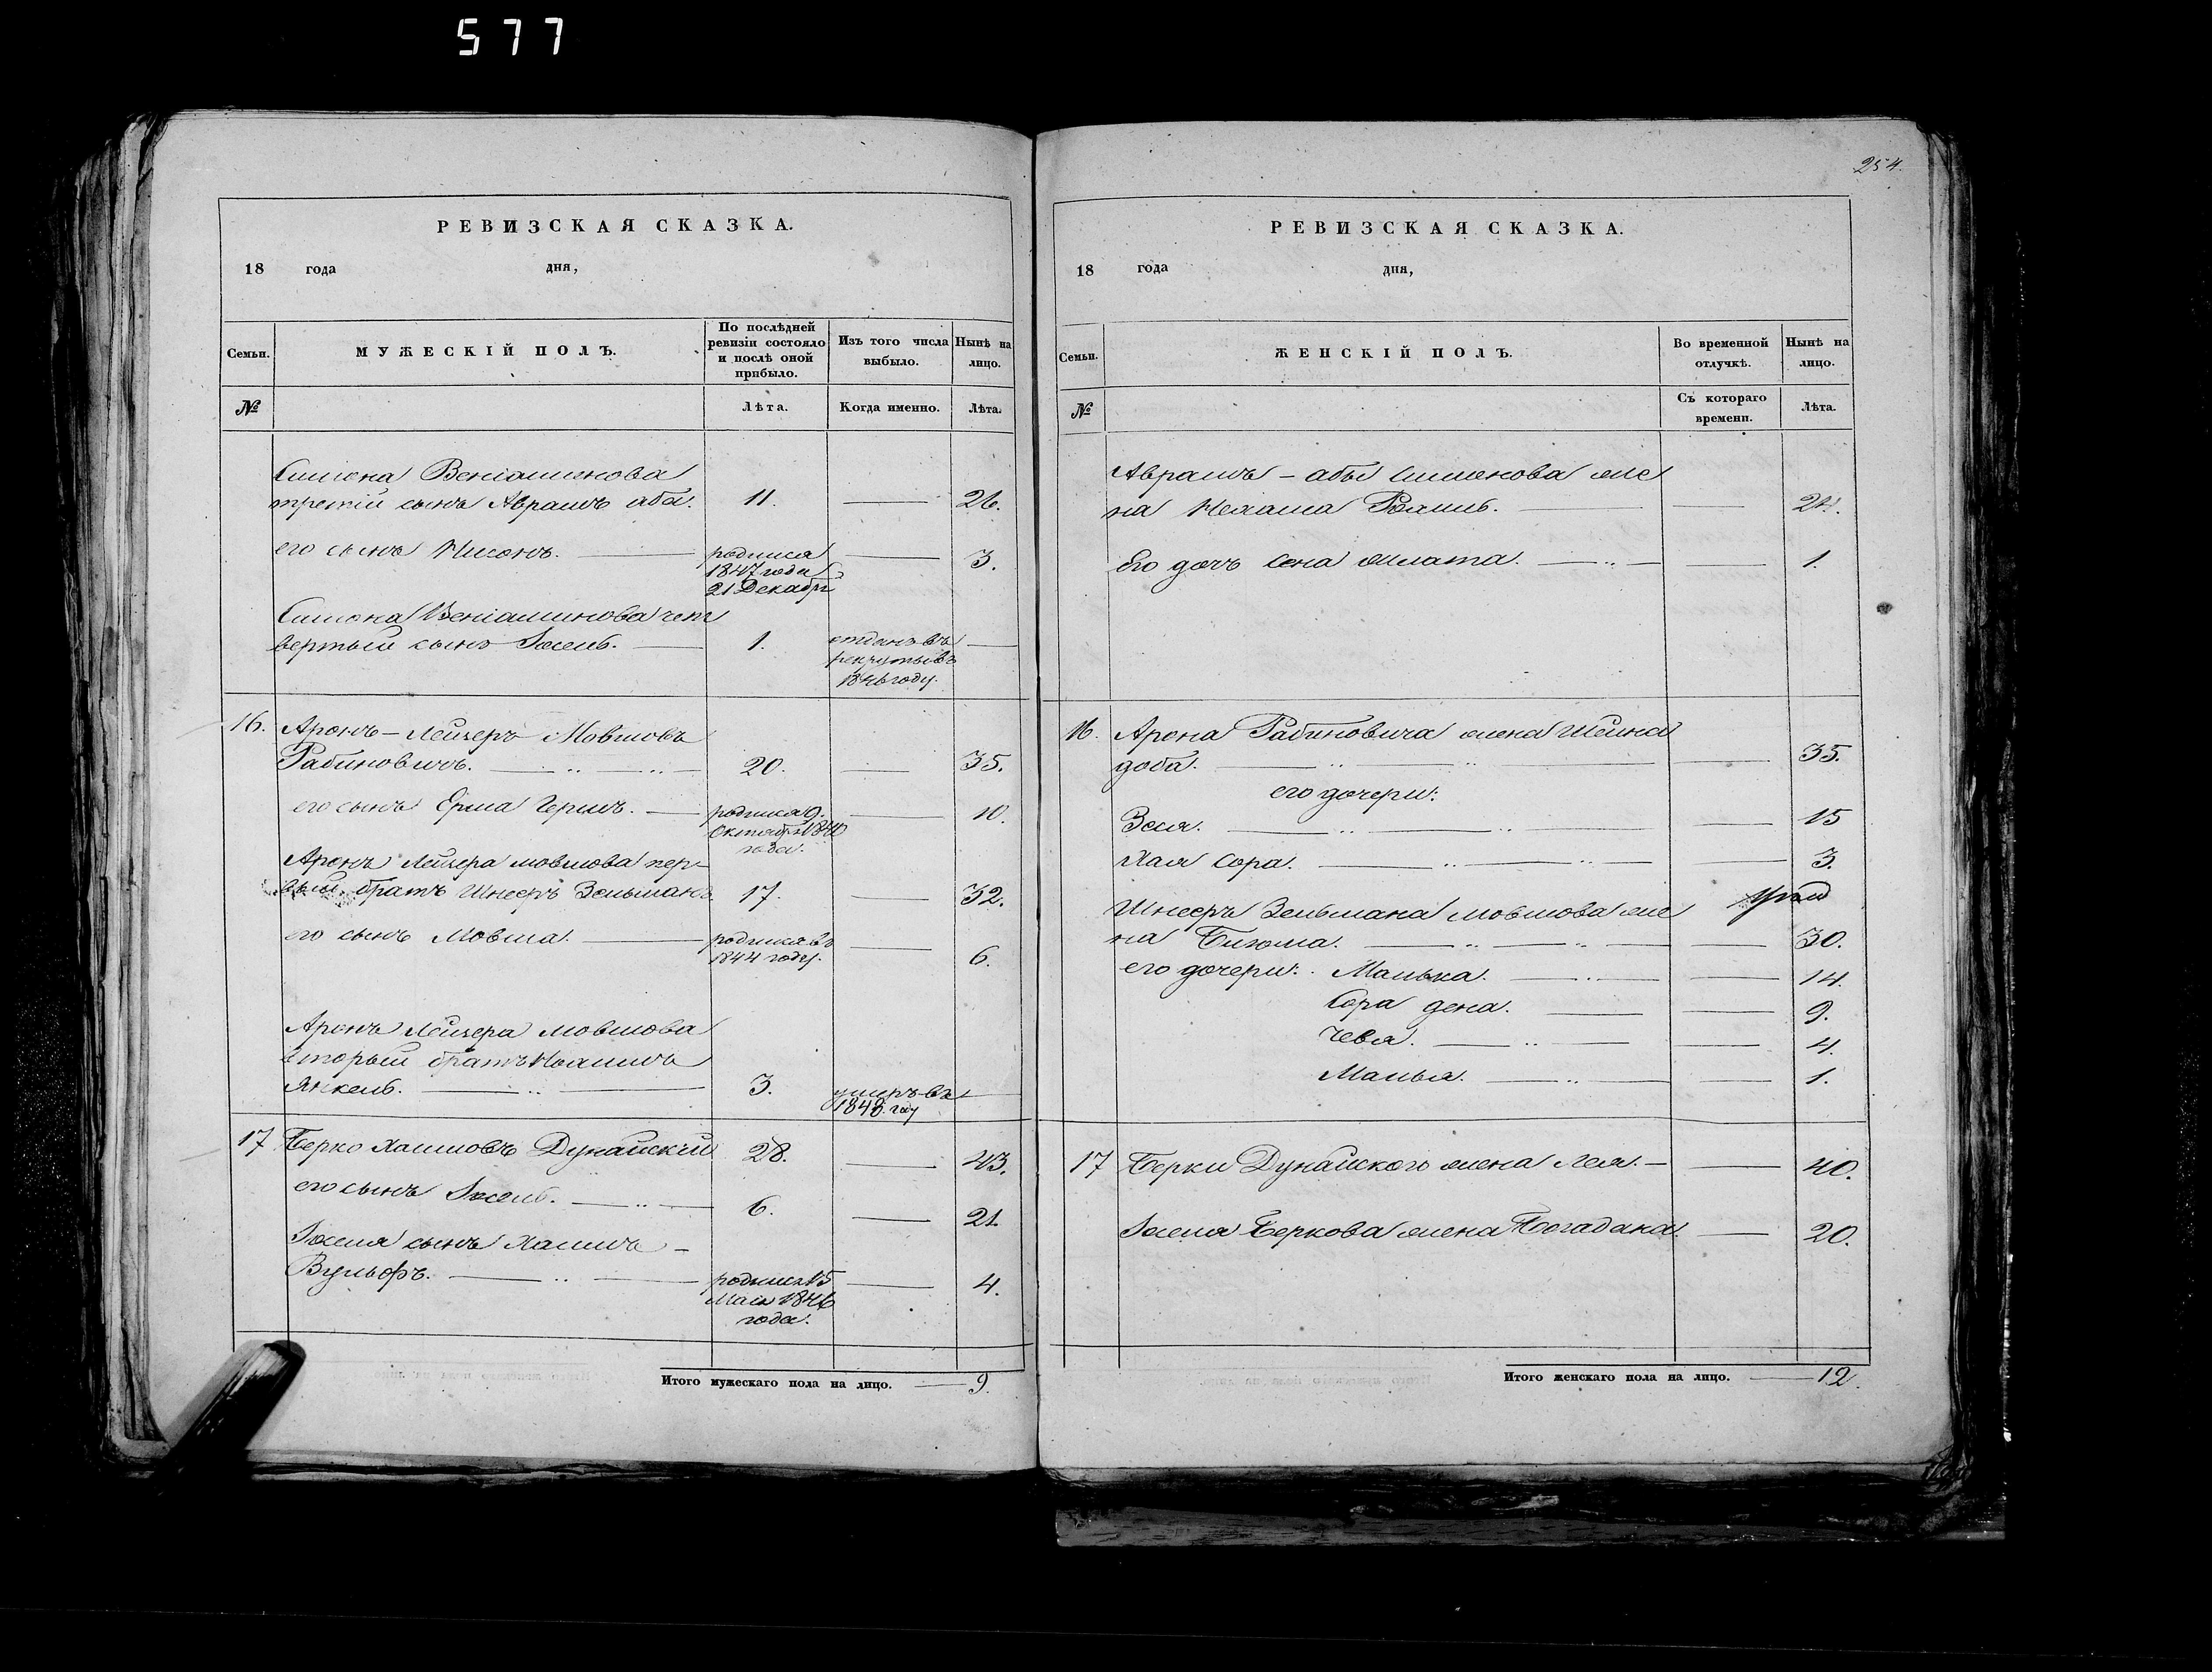 577
254.
РЕВИЗСКАЯ СКАЗКА.
18 года дня,
Семьи.
МУЖЕСКІЙ ПОЛЪ.
По послѣдней
ревизіи состояло
и послѣ оной
прибыло.
Изъ того числа
выбыло.
Нынѣ на
лицо.
№
Лѣта.
Когда именно.
Лѣта.
Симона Веніаминова
третій сынъ Абрамъ аба. 11. 26.
его сынъ Нисонъ. родился 3.
1847 года
21 Декабря
Симона Веніаминова чет
вертый сынъ Іосель. 1. отданъ въ
рекруты въ
1846 году.
16. Аронъ-Лейзеръ Мовшовъ
Рабиновичъ. 20. 35.
его сынъ Ерма Гершъ. родился 9. 10.
Октября 1840
года.
Аронъ Лейзера мовшова пер-
вый братъ Шнееръ Зельманъ 17. 32.
его сынъ Мовша. родился въ 6.
1844 году.
Аронъ Лейзера мовшова
вторый братъ
Янкель. 3. умеръ въ
1848 году
17 Берко Хаимовъ Дунайскій 28. 43.
его сынъ Іосель. 6. 21.
Іоселя сынъ Хаимъ -
Вульфъ. родился 15 4.
Мая 1846
года.
Итого мужескаго пола на лицо. 9.
РЕВИЗСКАЯ СКАЗКА.
18 года дня,
Семьи.
ЖЕНСКІЙ ПОЛЪ.
Во временной
отлучкѣ.
Нынѣ на
лицо.
№
Съ котораго
времени.
Лѣта.
Абрамъ - абы Симонова же
на Нехама 24.
Его дочь Сена Злата. 1.
16. Арона Рабиновича жена Шейна
доба. 35.
его дочери:
Зеля. 15
Хая Сора. 3.
Шнееръ Зельмана мовшова же
на Блюма. 30.
его дочери: Малька. 14.
Сора дена. 9.
Чевя. 4.
Малья. 1.
17 Берки Дунайскаго жена Лея. - 40.
Іоселя Беркова жена Богадана. 20.
Итого женскаго пола на лицо. 12.